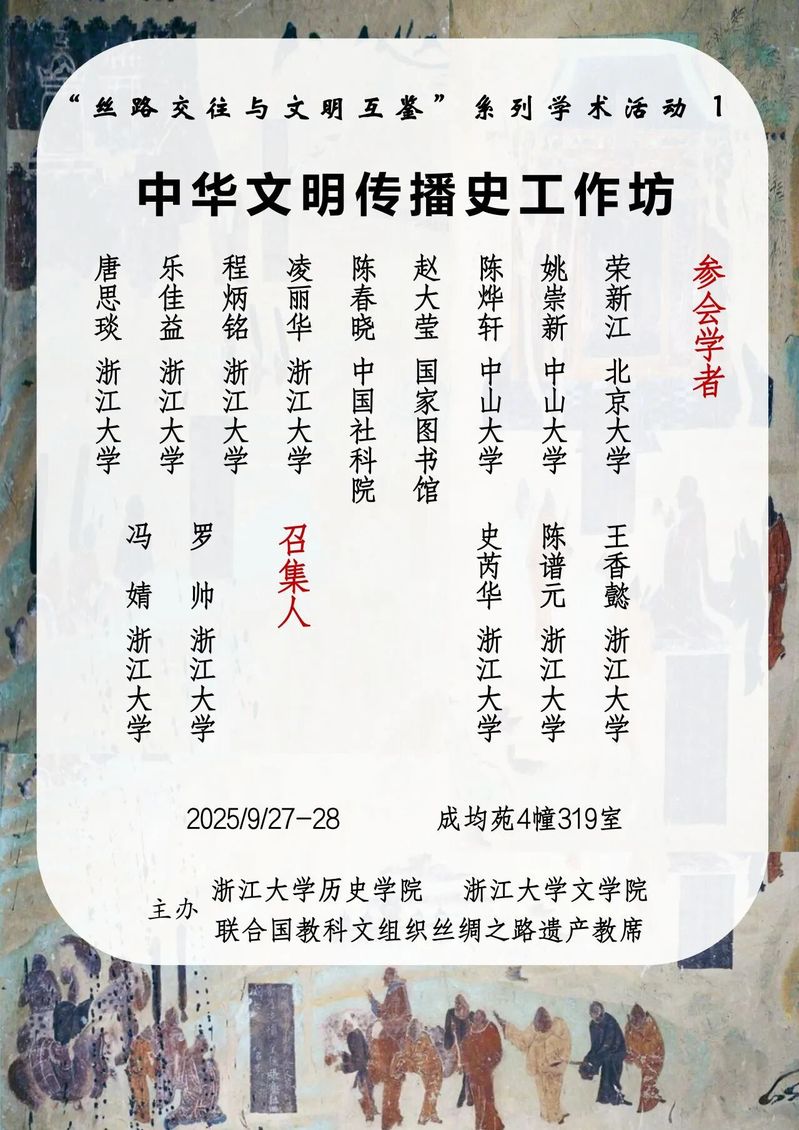 “丝路交往与文明互鉴”系列学术活动 1
中华文明传播史工作坊
参会学者
荣新江 北京大学
姚崇新 中山大学
陈烨轩 中山大学
赵大莹 国家图书馆
陈春晓 中国社科院
凌丽华 浙江大学
程炳铭 浙江大学
乐佳益 浙江大学
唐思琰 浙江大学
王香懿 浙江大学
陈谱元 浙江大学
史芮华 浙江大学
召集人
罗 帅 浙江大学
冯 婧 浙江大学
2025/9/27-28 成均苑4幢319室
主办
浙江大学历史学院 浙江大学文学院
联合国教科文组织丝绸之路遗产教席